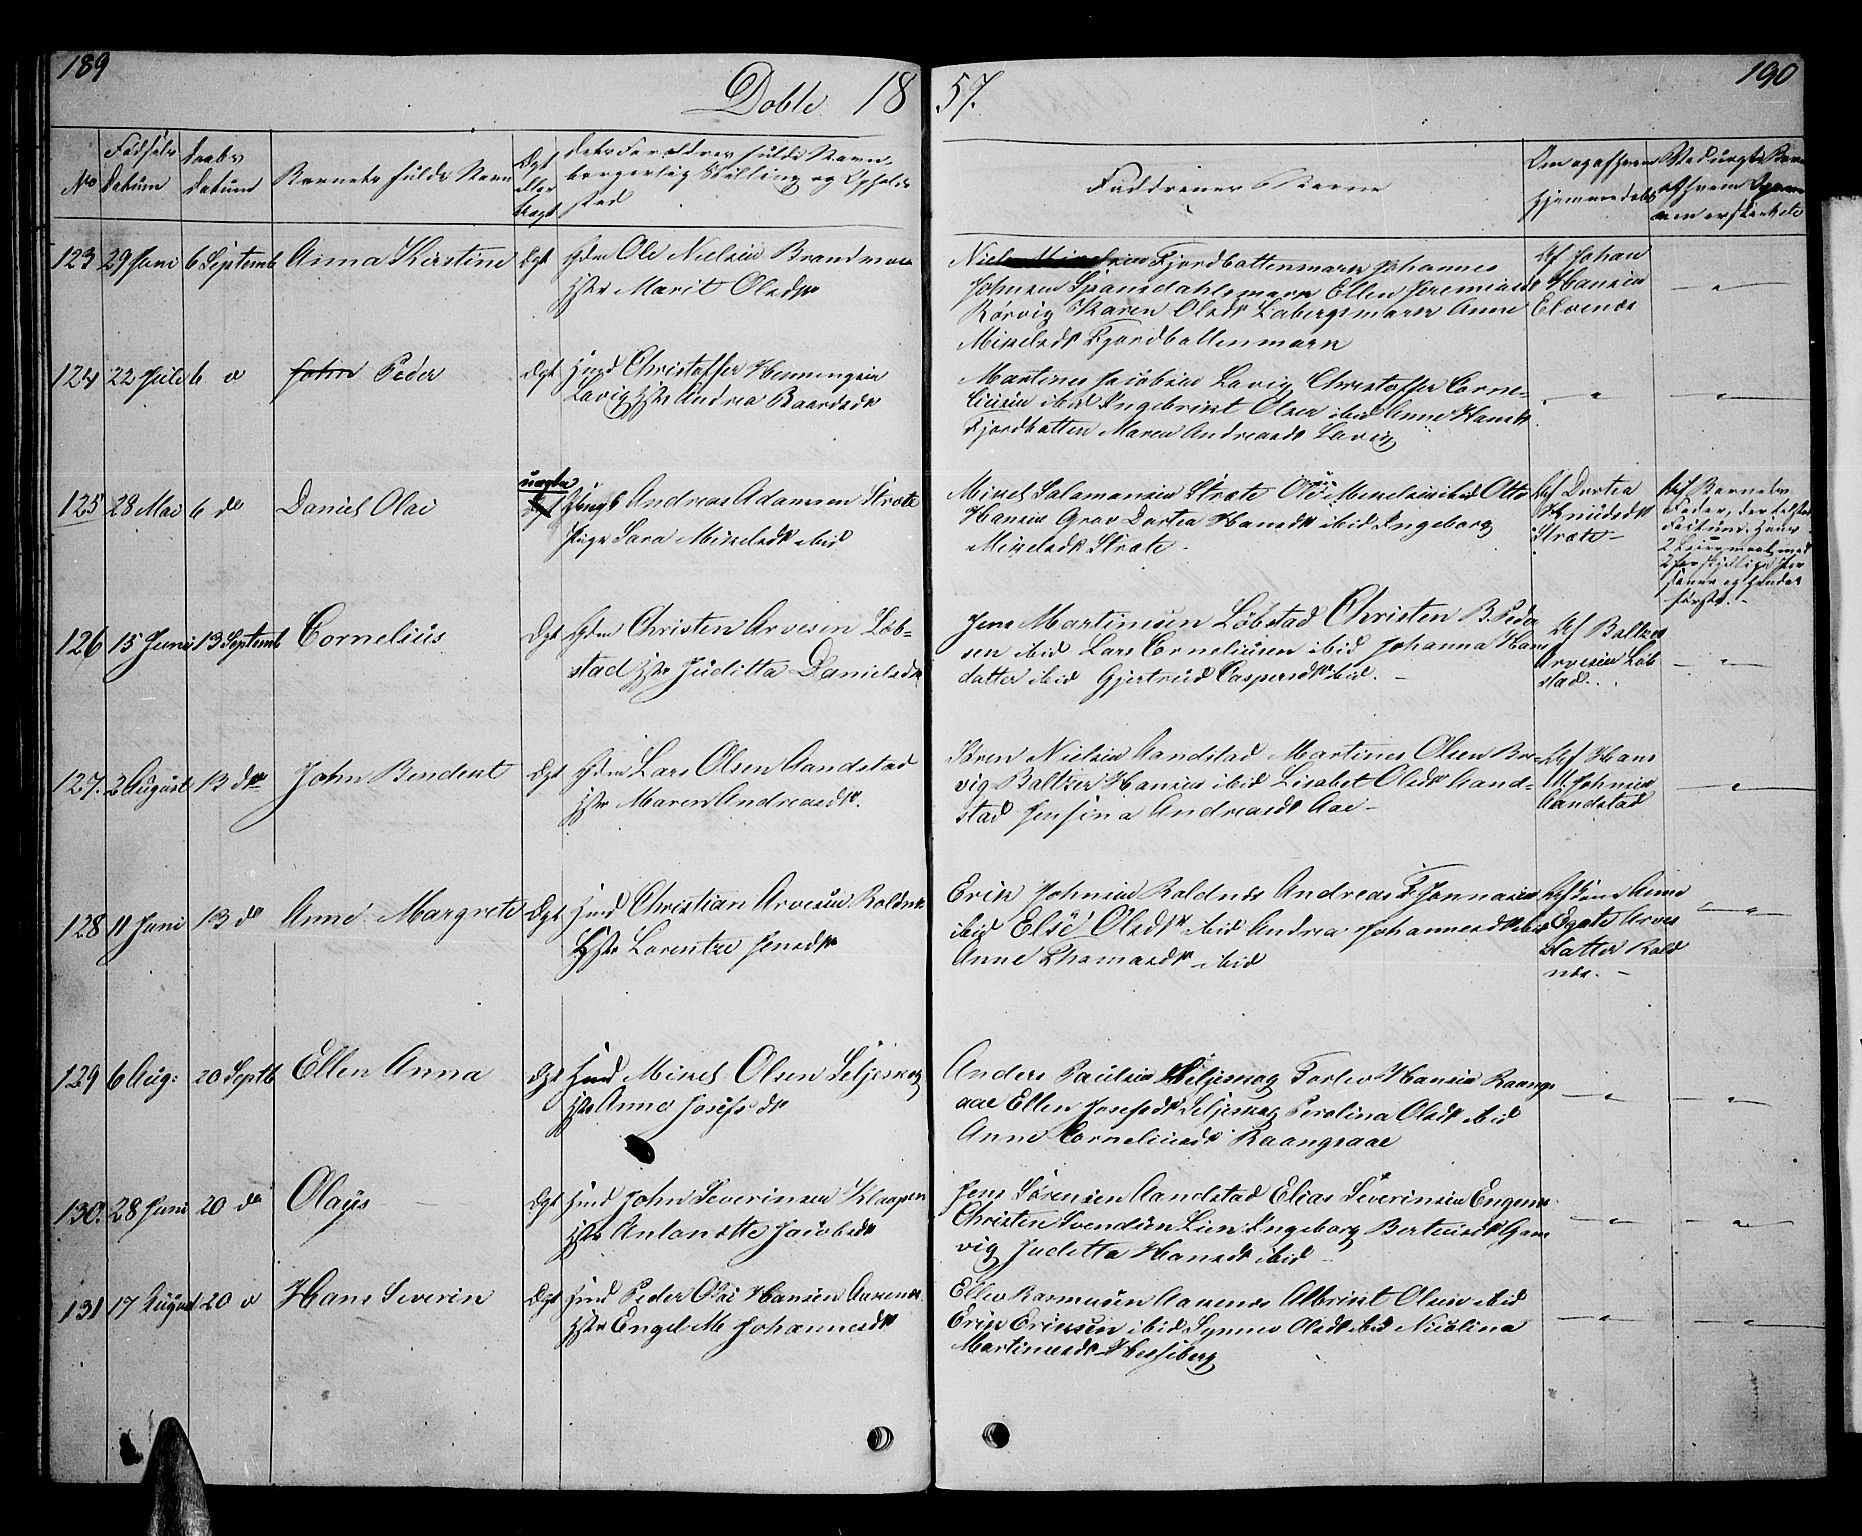 189
Døbte 18
57.
190
No
Fødsels
Datum
Daabs
Datum
Barnets fulde Navn
Ægt
eller
Uægt
Forældres fulde Navn,
borgerlig Stilling og Opholds
sted
Faddernes Navne
Om og af hvem
hjemmedøbt
123 29 Juni 6 Septemb Anna Kirstine Ægt Gdm Ole Nielsen Brandmoe
Hstr Marit Olsdr
Fjordbottenmark Johannes
Johnsen Spansdahlsmark Ellen Jeremiasd
Rørvig Karen Olsdr Labergsmark Anne
Mikelsdr Fjordbottenmark
Af Johan
Hansen
Elvenes
124 22 Juli 6 " John Peder Ægt Christoffer Henningsen
Lavig Hstr Andrea Baardsdr
Martines Jacobsen Lavig Christoffer Corne-
liusen ibid Ingebrikt Olsen ibid Anne Hansdr
Fjordbotten Maren Andreasdr Lavig
125 28 Mai 6 do Daniel Olai uægte Ungk Andreas Adamsen Strate
Pige Sara Mikelsdr ibid
Mikel Salamonsen Strate Ole Mikelsen ibid Otto
Hansen Grav Dortea Hansdr ibid Ingeborg
Mikelsdr Strate.
Af Dortea
Knudsdr
Stræte
Af Barnets
Fader,
Faitum. Hans
2 Leiermaal med
2 forskjellige Per
soner og hendes
første.
126 15 Juni 13 Septemb Cornelius Ægt Gdm Christen Arvesen Løb-
stad Hstr Juditta Danielsdr
Jens Martinusen Løbstad Christen B. Peder
sen ibid Lars Corneliusen ibid Johanna Hans
datter ibid Gjertrud Caspersdr ibid.
Af Baltzer
Arvesen Løb
stad.
127. 2 August 13 do John Bendent Ægt Gdm Lars Olsen Aandstad
Hstr Maren Andreasdr.
Søren Nielsen Aandstad Martines Olsen Bre-
vig Baltzer Hansen ibid Lisabet Olsdr Aand-
stad Jensina Andreasdr Aae
Af Hans
A. Johnsen
Aandstad
128 11 Juni 13 do Anne Margrete Ægt Hmd Christian Arvesen Roldnes
Hstr Lorentze Jensdr
Erik Johnsen Roldnes Andreas F. Jonnasen
ibid Else Olsdr ibid Andrea Johannesdr ibid
Anne Thomasdr ibid
Anne
Arves
datter Rold
nes.
129 6 Aug: 20 Septb Ellen Anna Ægt Hmd Mikel Olsen Seljeskog
Hstr Anne Josefsdr
Anders Paulsen Seljeskog Torlev Hansen Raangs
aae Ellen Josefsdr Seljeskog Perolina Olsdr ibid
Anne Corneliusdr Raangsaae
130. 28 Juni 20 do Olays Ægt Hmd John Severinsen Klaapen
Hstr Antonette Jacobsdr
Jens Sørensen Aandstad Elias Severinsen Engenes
Christen Svendsen Lien Ingeborg Berteusdr Gam
vig Juditta Hansdr ibid
131 17 August 20 " Hans Severin Ægt Hmd Peder Olai Hansen Aakenes
Hstr Engel M. Johannesdr
Ellev Rasmusen Aakenes Albrikt Olsen ibid
Erik Eriksen ibid Synnev Olsdr ibid Nicolina
Martinusdr Hessiberg